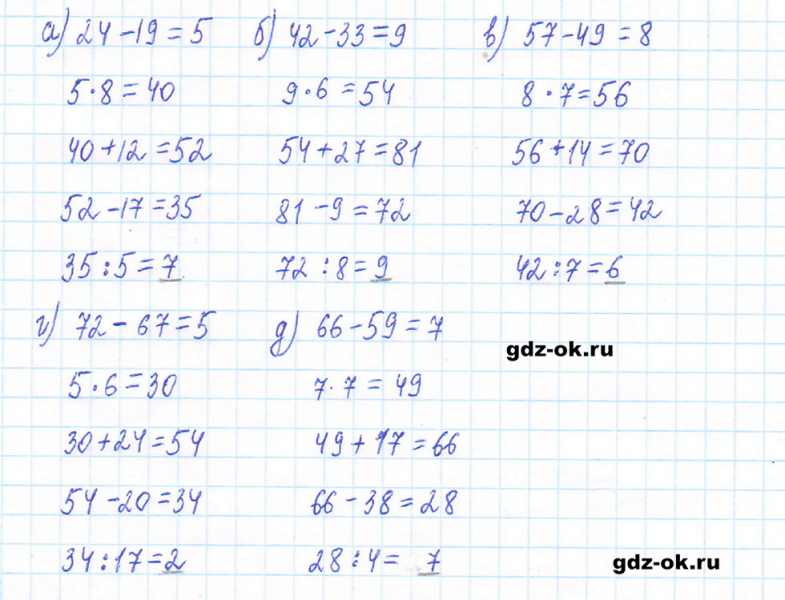 а) 24 - 19 = 5
5 · 8 = 40
40 + 12 = 52
52 - 17 = 35
35 : 5 = 7
б) 42 - 33 = 9
9 · 6 = 54
54 + 27 = 81
81 - 9 = 72
72 : 8 = 9
в) 57 - 49 = 8
8 · 7 = 56
56 + 14 = 70
70 - 28 = 42
42 : 7 = 6
г) 72 - 67 = 5
5 · 6 = 30
30 + 24 = 54
54 - 20 = 34
34 : 17 = 2
д) 66 - 59 = 7
7 · 7 = 49
49 + 17 = 66
66 - 38 = 28
28 : 4 = 7
gdz-ok.ru
gdz-ok.ru